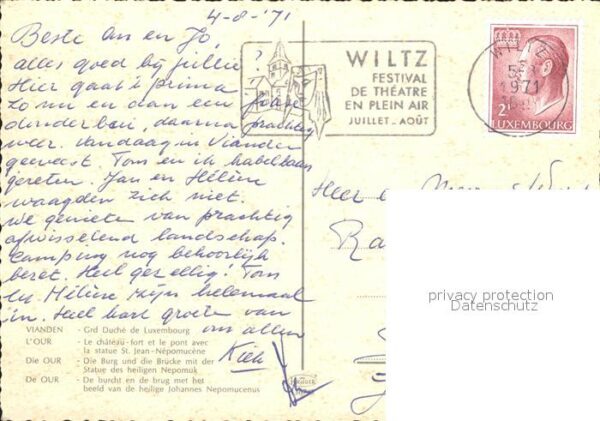 4-8-'71
Beste An en Jo,
alles goed bij jullie?
Hier gaat 't prima
Zo nu en dan een
donderbui, daarna prachtig
weer. Vandaag in Vianden
geweest. Tom en ik kabelbaan
gereten. Jan en Hélène
waagden zich niet.
We genieten van prachtig
afwisselend landschap.
Camping nog behoorlijk
bezet. Heel gezellig! Tom
en Hélène zijn helemaal
in. Heel hart. groeten van
ons allen
WILTZ
FESTIVAL
DE THÉATRE
EN PLEIN AIR
JUILLET - AOÛT
WILTZ
1971
2F
LUXEMBOURG
Heer e
Ra
privacy protection
Datenschutz
VIANDEN - Grd Duché de Luxembourg
L'OUR - Le château-fort et le pont avec
la statue St. Jean-Népomucène
Die OUR - Die Burg und die Brücke mit der
Statue des heiligen Nepomuk
De OUR - De burcht en de brug met het
beeld van de heilige Johannes Nepomucenus